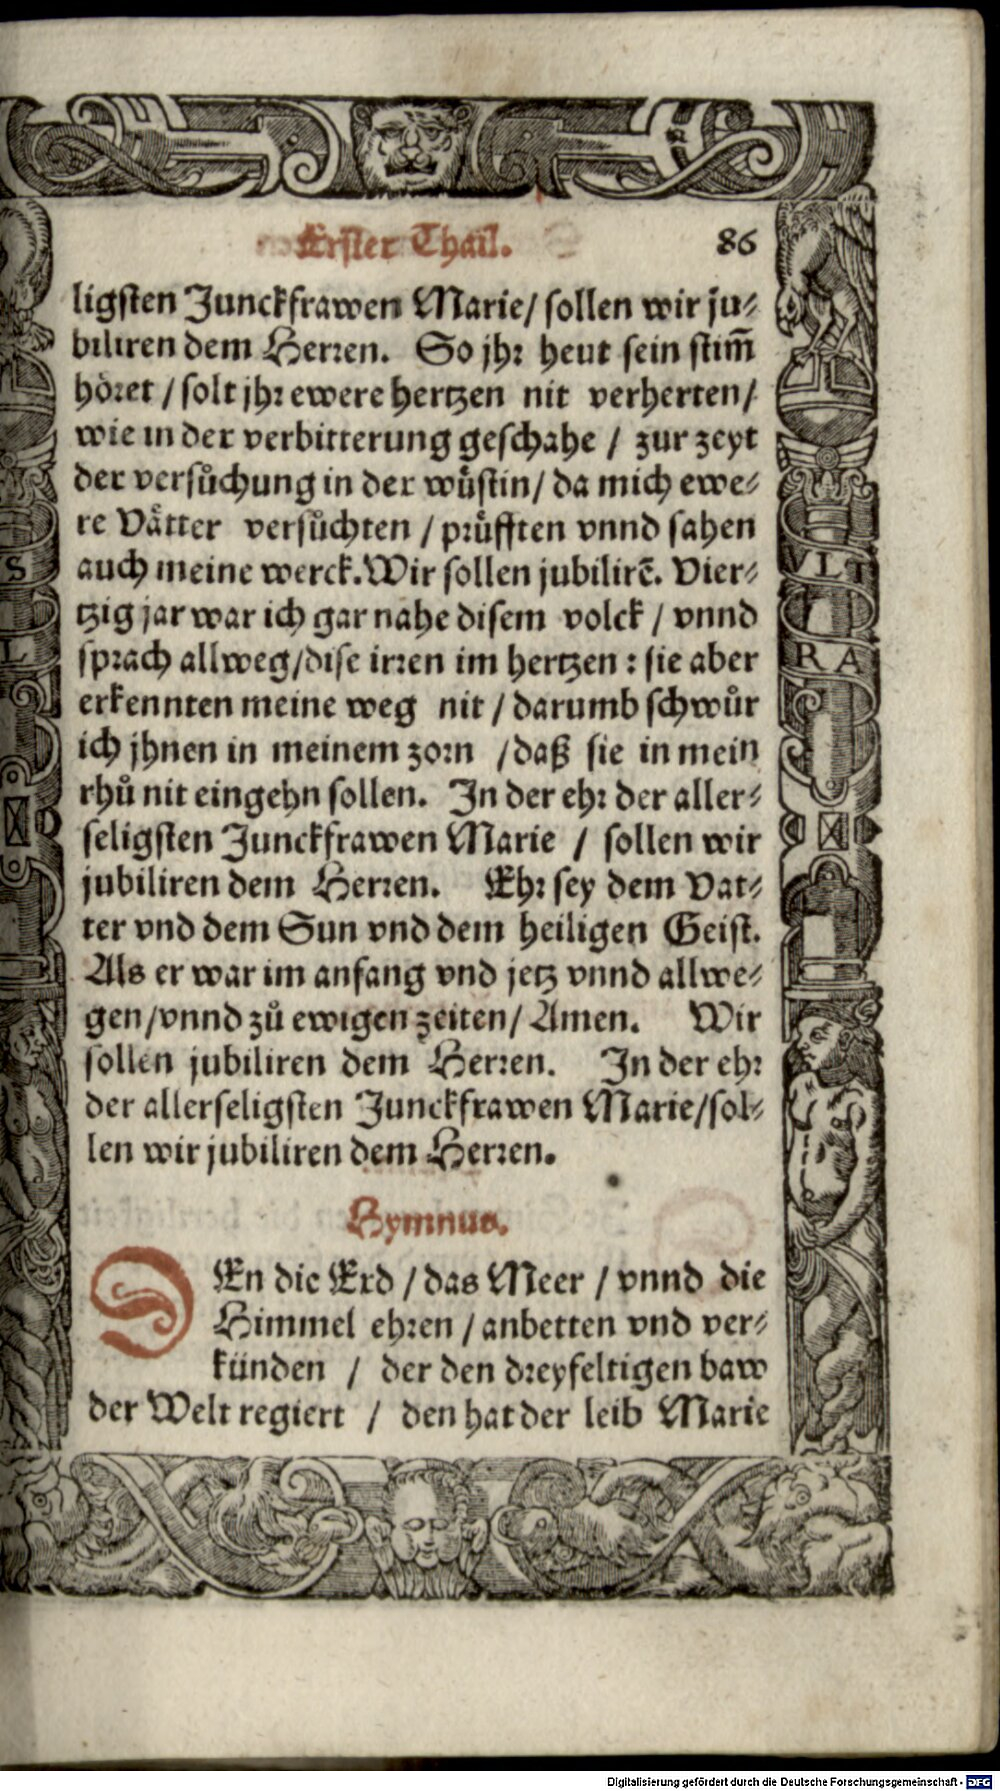 Erster Thail. 86
ligsten Junckfrawen Marie/ sollen wir ju⸗
biliren dem Herꝛen. So jhꝛ heut sein stim̃
höꝛet / solt jhꝛ ewere hertzen nit verherten/
wie in der verbitterung geschahe / zur zeyt
der versůchung in der wůstin/ da mich ewe⸗
re Våtter versůchten / pꝛüfften vnnd sahen
auch meine werck. Wir sollen jubilirẽ. Vier⸗
tzig jar war ich gar nahe disem volck / vnnd
spꝛach allweg/dise irꝛen im hertzen : sie aber
erkennten meine weg nit / darumb schwůr
ich jhnen in meinem zoꝛn /daß sie in mein
rhů nit eingehn sollen. In der ehꝛ der aller⸗
seligsten Junckfrawen Marie / sollen wir
jubiliren dem Herꝛen. Ehꝛ sey dem Vat⸗
ter vnd dem Sun vnd dem heiligen Geist.
Als er war im anfang vnd jetz vnnd allwe⸗
gen/vnnd zů ewigen zeiten/ Amen. Wir
sollen jubiliren dem Herꝛen. In der ehꝛ
der allerseligsten Junckfrawen Marie/sol⸗
len wir jubiliren dem Herꝛen.
Hymnus.
DEn die Erd / das Meer / vnnd die
Himmel ehꝛen / anbetten vnd ver⸗
künden / der den dꝛeyfeltigen baw
der Welt regiert / den hat der leib Marie
S
L
VLT
RA
Digitalisierung gefördert durch die Deutsche Forschungsgemeinschaft - DFG